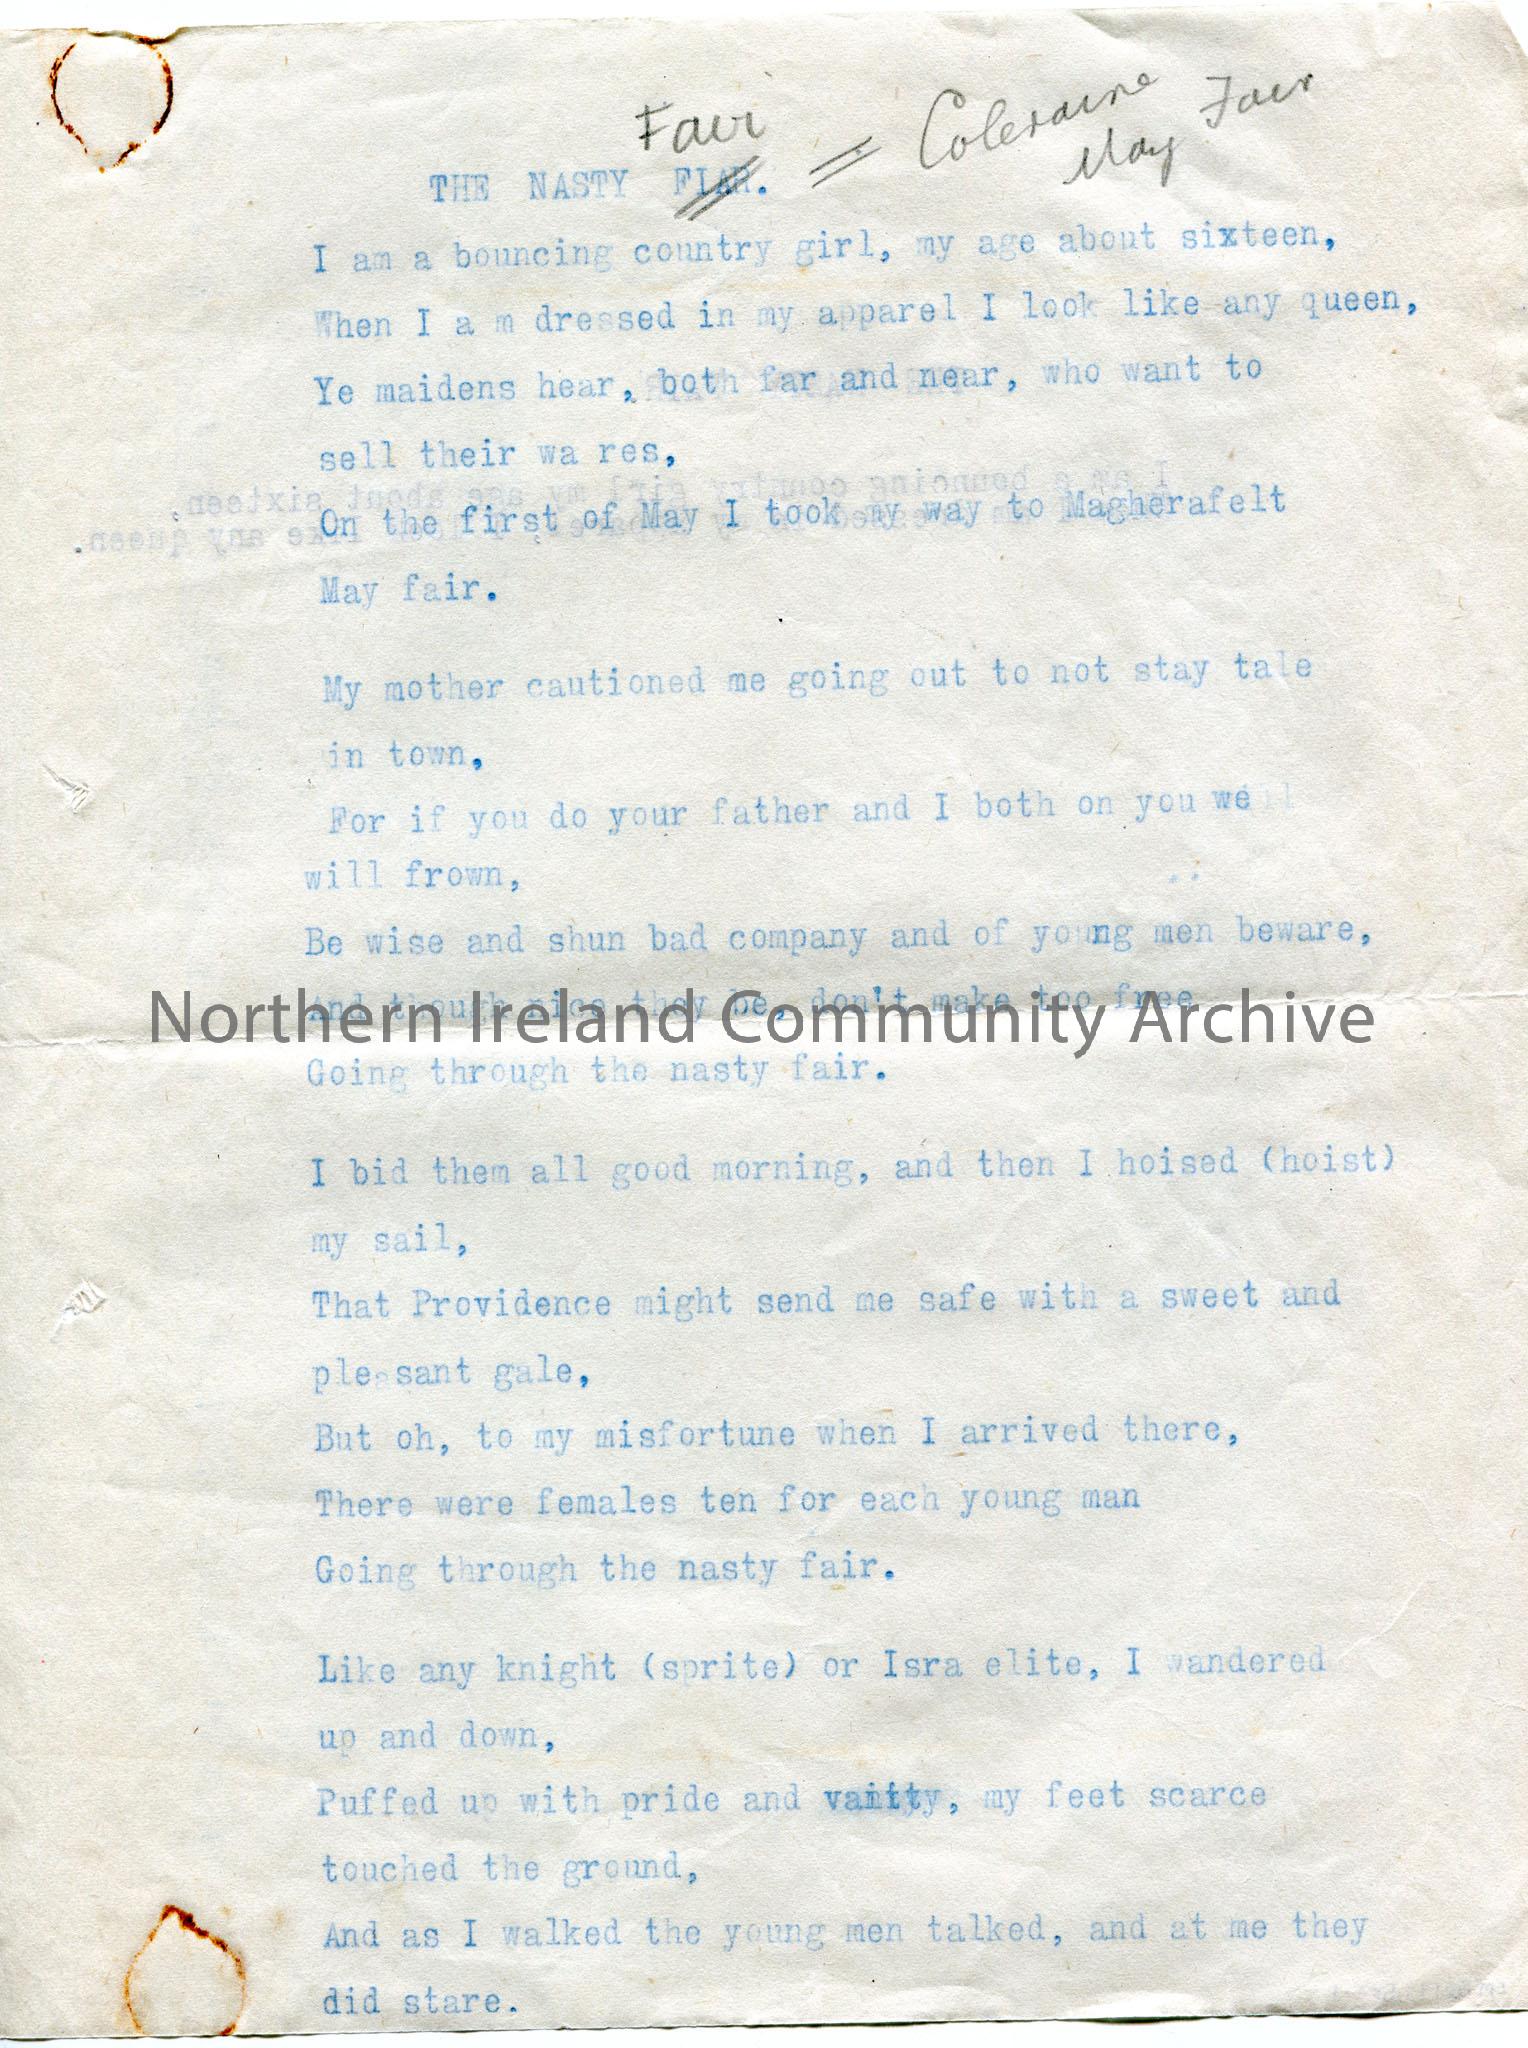 Fair = Coleraine
May Fair
THE NASTY FIAR.
I am a bouncing country girl, my age about sixteen,
When I a m dressed in my apparel I look like any queen,
Ye maidens hear, both far and near, who want to
sell their wa res,
On the first of May I took my way to Magherafelt
May fair.
My mother cautioned me going out to not stay tale
in town,
For if you do your father and I both on you we
will frown,
Be wise and shun bad company and of young men beware,
And though nice they be, don't make too free
Northern Ireland Community Archive
Going through the nasty fair.
I bid them all good morning, and then I hoised (hoist)
my sail,
That Providence might send me safe with a sweet and
pleasant gale,
But oh, to my misfortune when I arrived there,
There were females ten for each young man
Going through the nasty fair.
Like any knight (sprite) or Isra elite, I wandered
up and down,
Puffed up with pride and vanity, my feet scarce
touched the ground,
And as I walked the young men talked, and at me they
did stare.